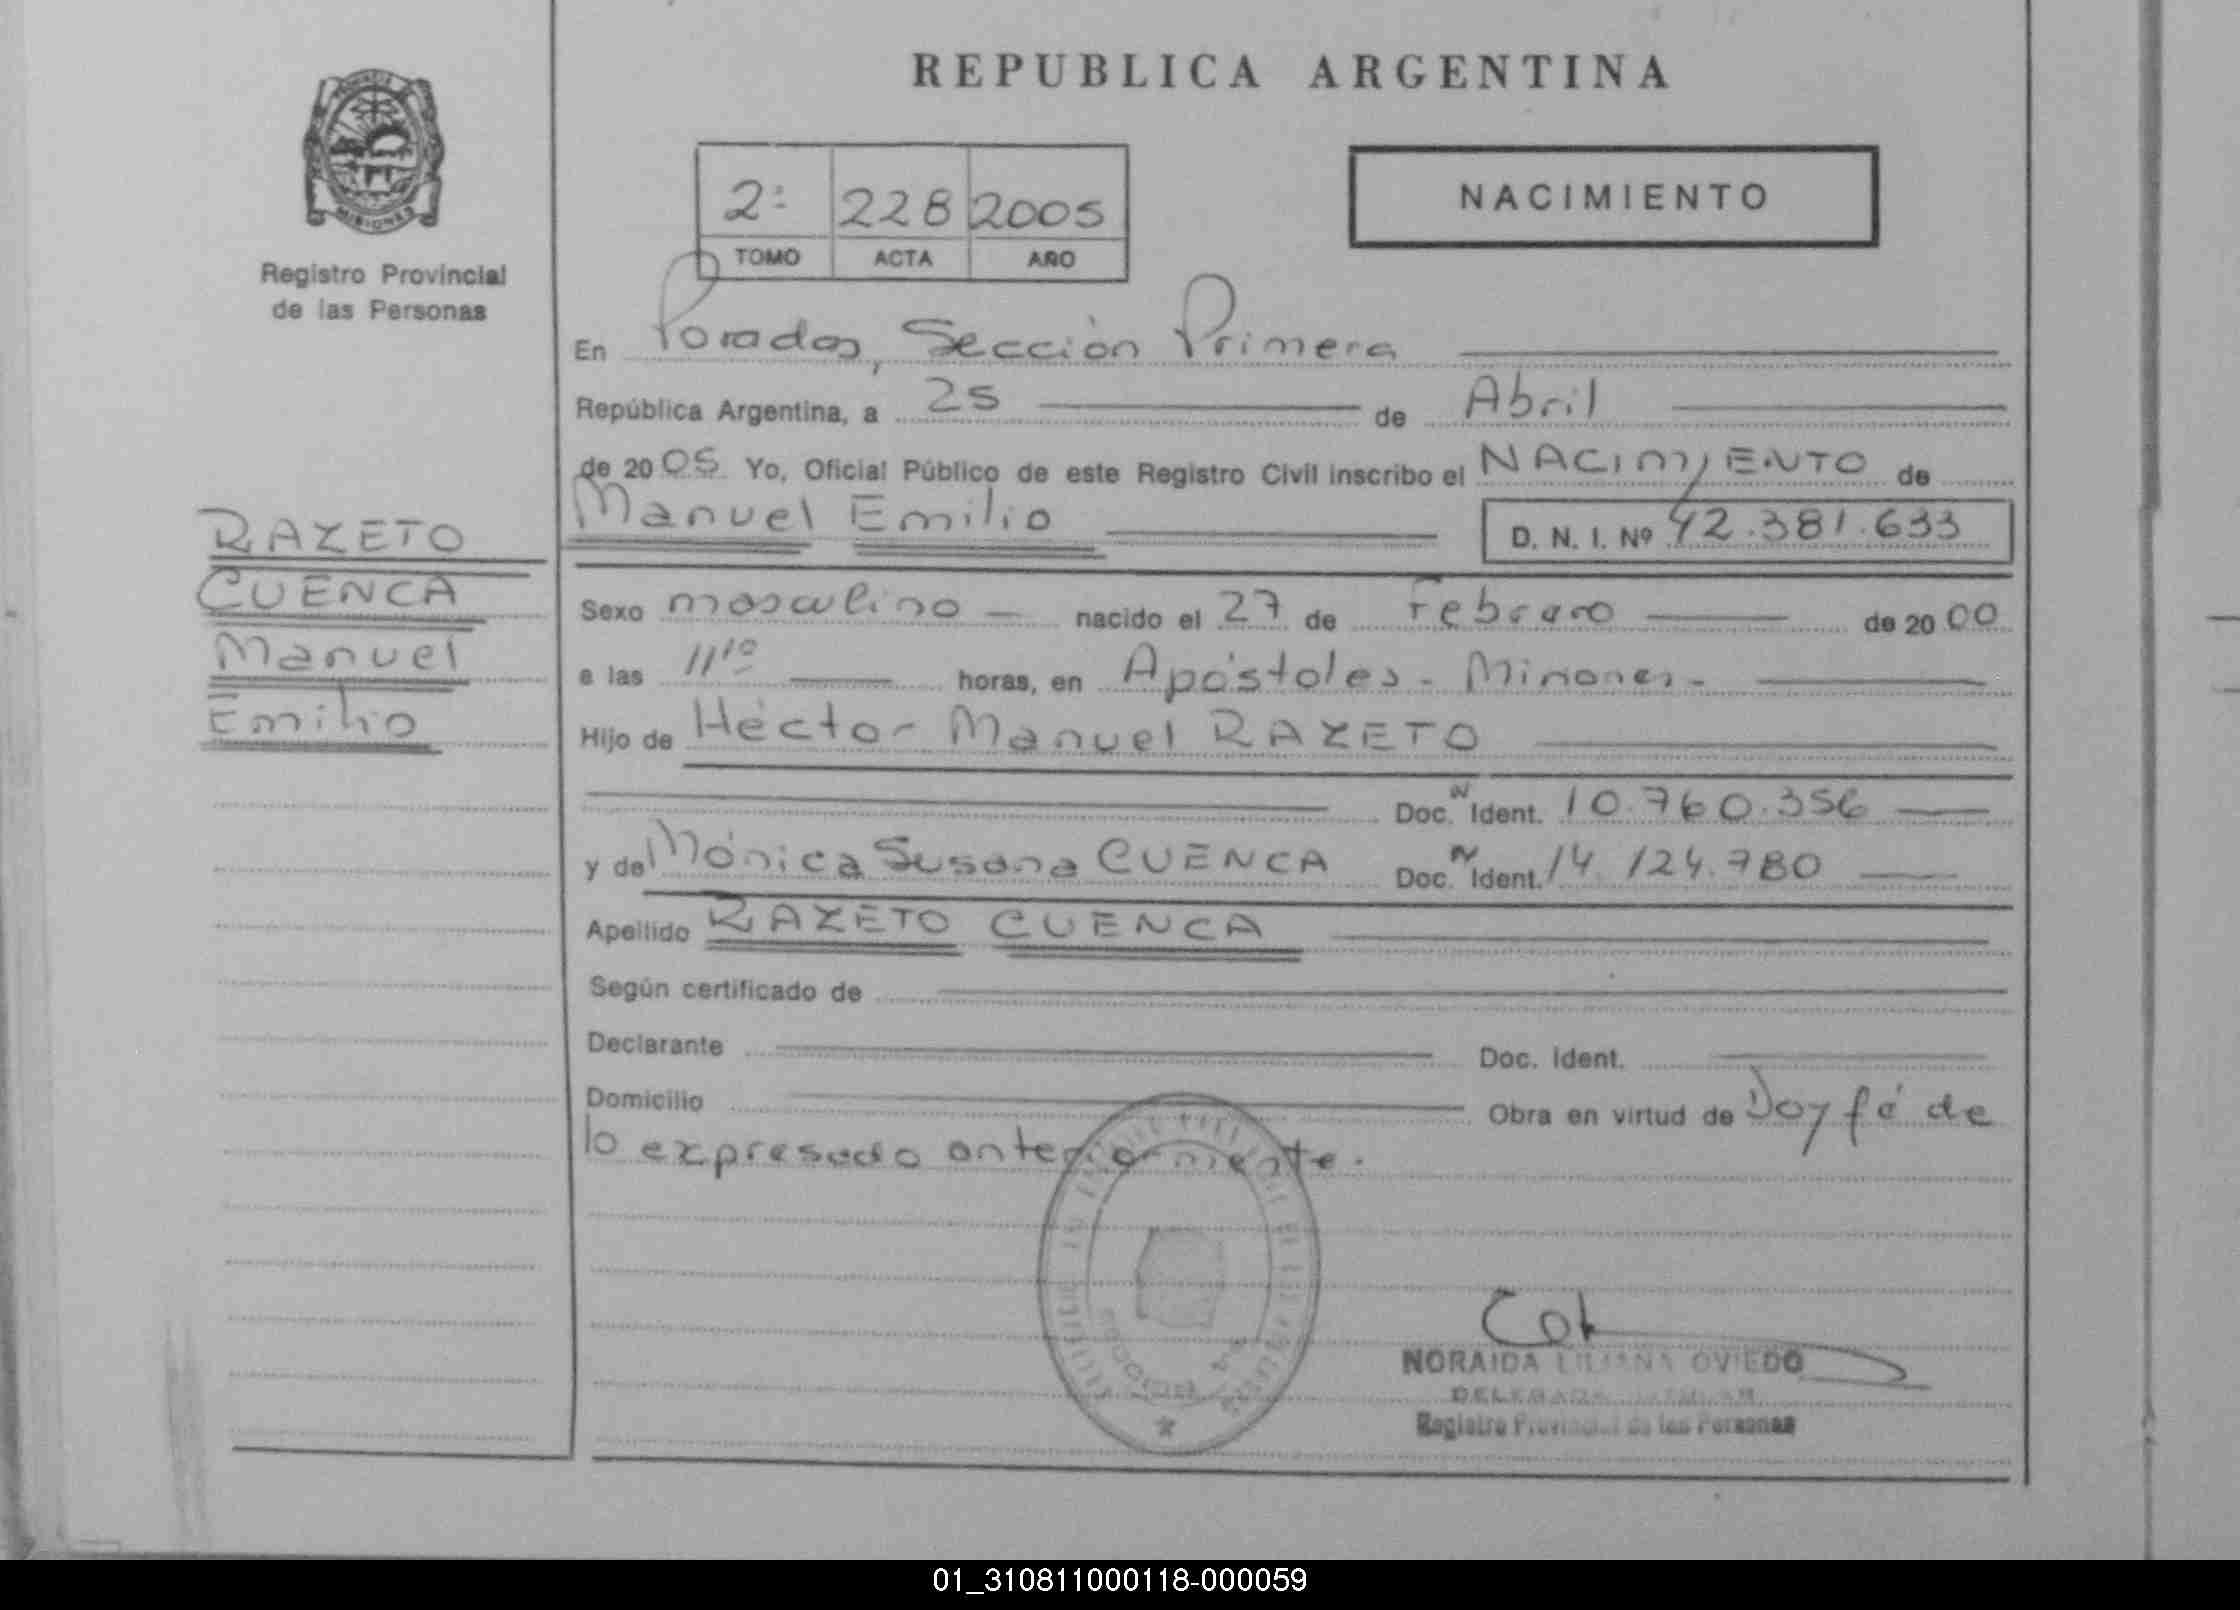 REPUBLICA ARGENTINA
PROVINCIA
MISIONES
Registro Provincial
de las Personas
2º 228 2005
TOMO ACTA AÑO
NACIMIENTO
En Posadas, Sección Primera
República Argentina, a 25 de Abril
de 2005 Yo, Oficial Público de este Registro Civil inscribo el NACIMIENTO de
Manuel Emilio D. N. I. Nº 42.381.633
RAZETO
CUENCA
Manuel
Emilio
Sexo masculino nacido el 27 de Febrero de 2000
a las 11¹⁰ horas, en Apóstoles - Misiones -
Hijo de Héctor Manuel RAZETO
Doc. N Ident. 10.760.356
y de Mónica Susana CUENCA Doc. N Ident. 14.124.780
Apellido RAZETO CUENCA
Según certificado de
Declarante Doc. Ident.
Domicilio Obra en virtud de Doy fé de
lo expresado anteriormente.
NORAIDA LILIANA OVIEDO
DELEGADA TITULAR
Registro Provincial de las Personas
01_310811000118-000059